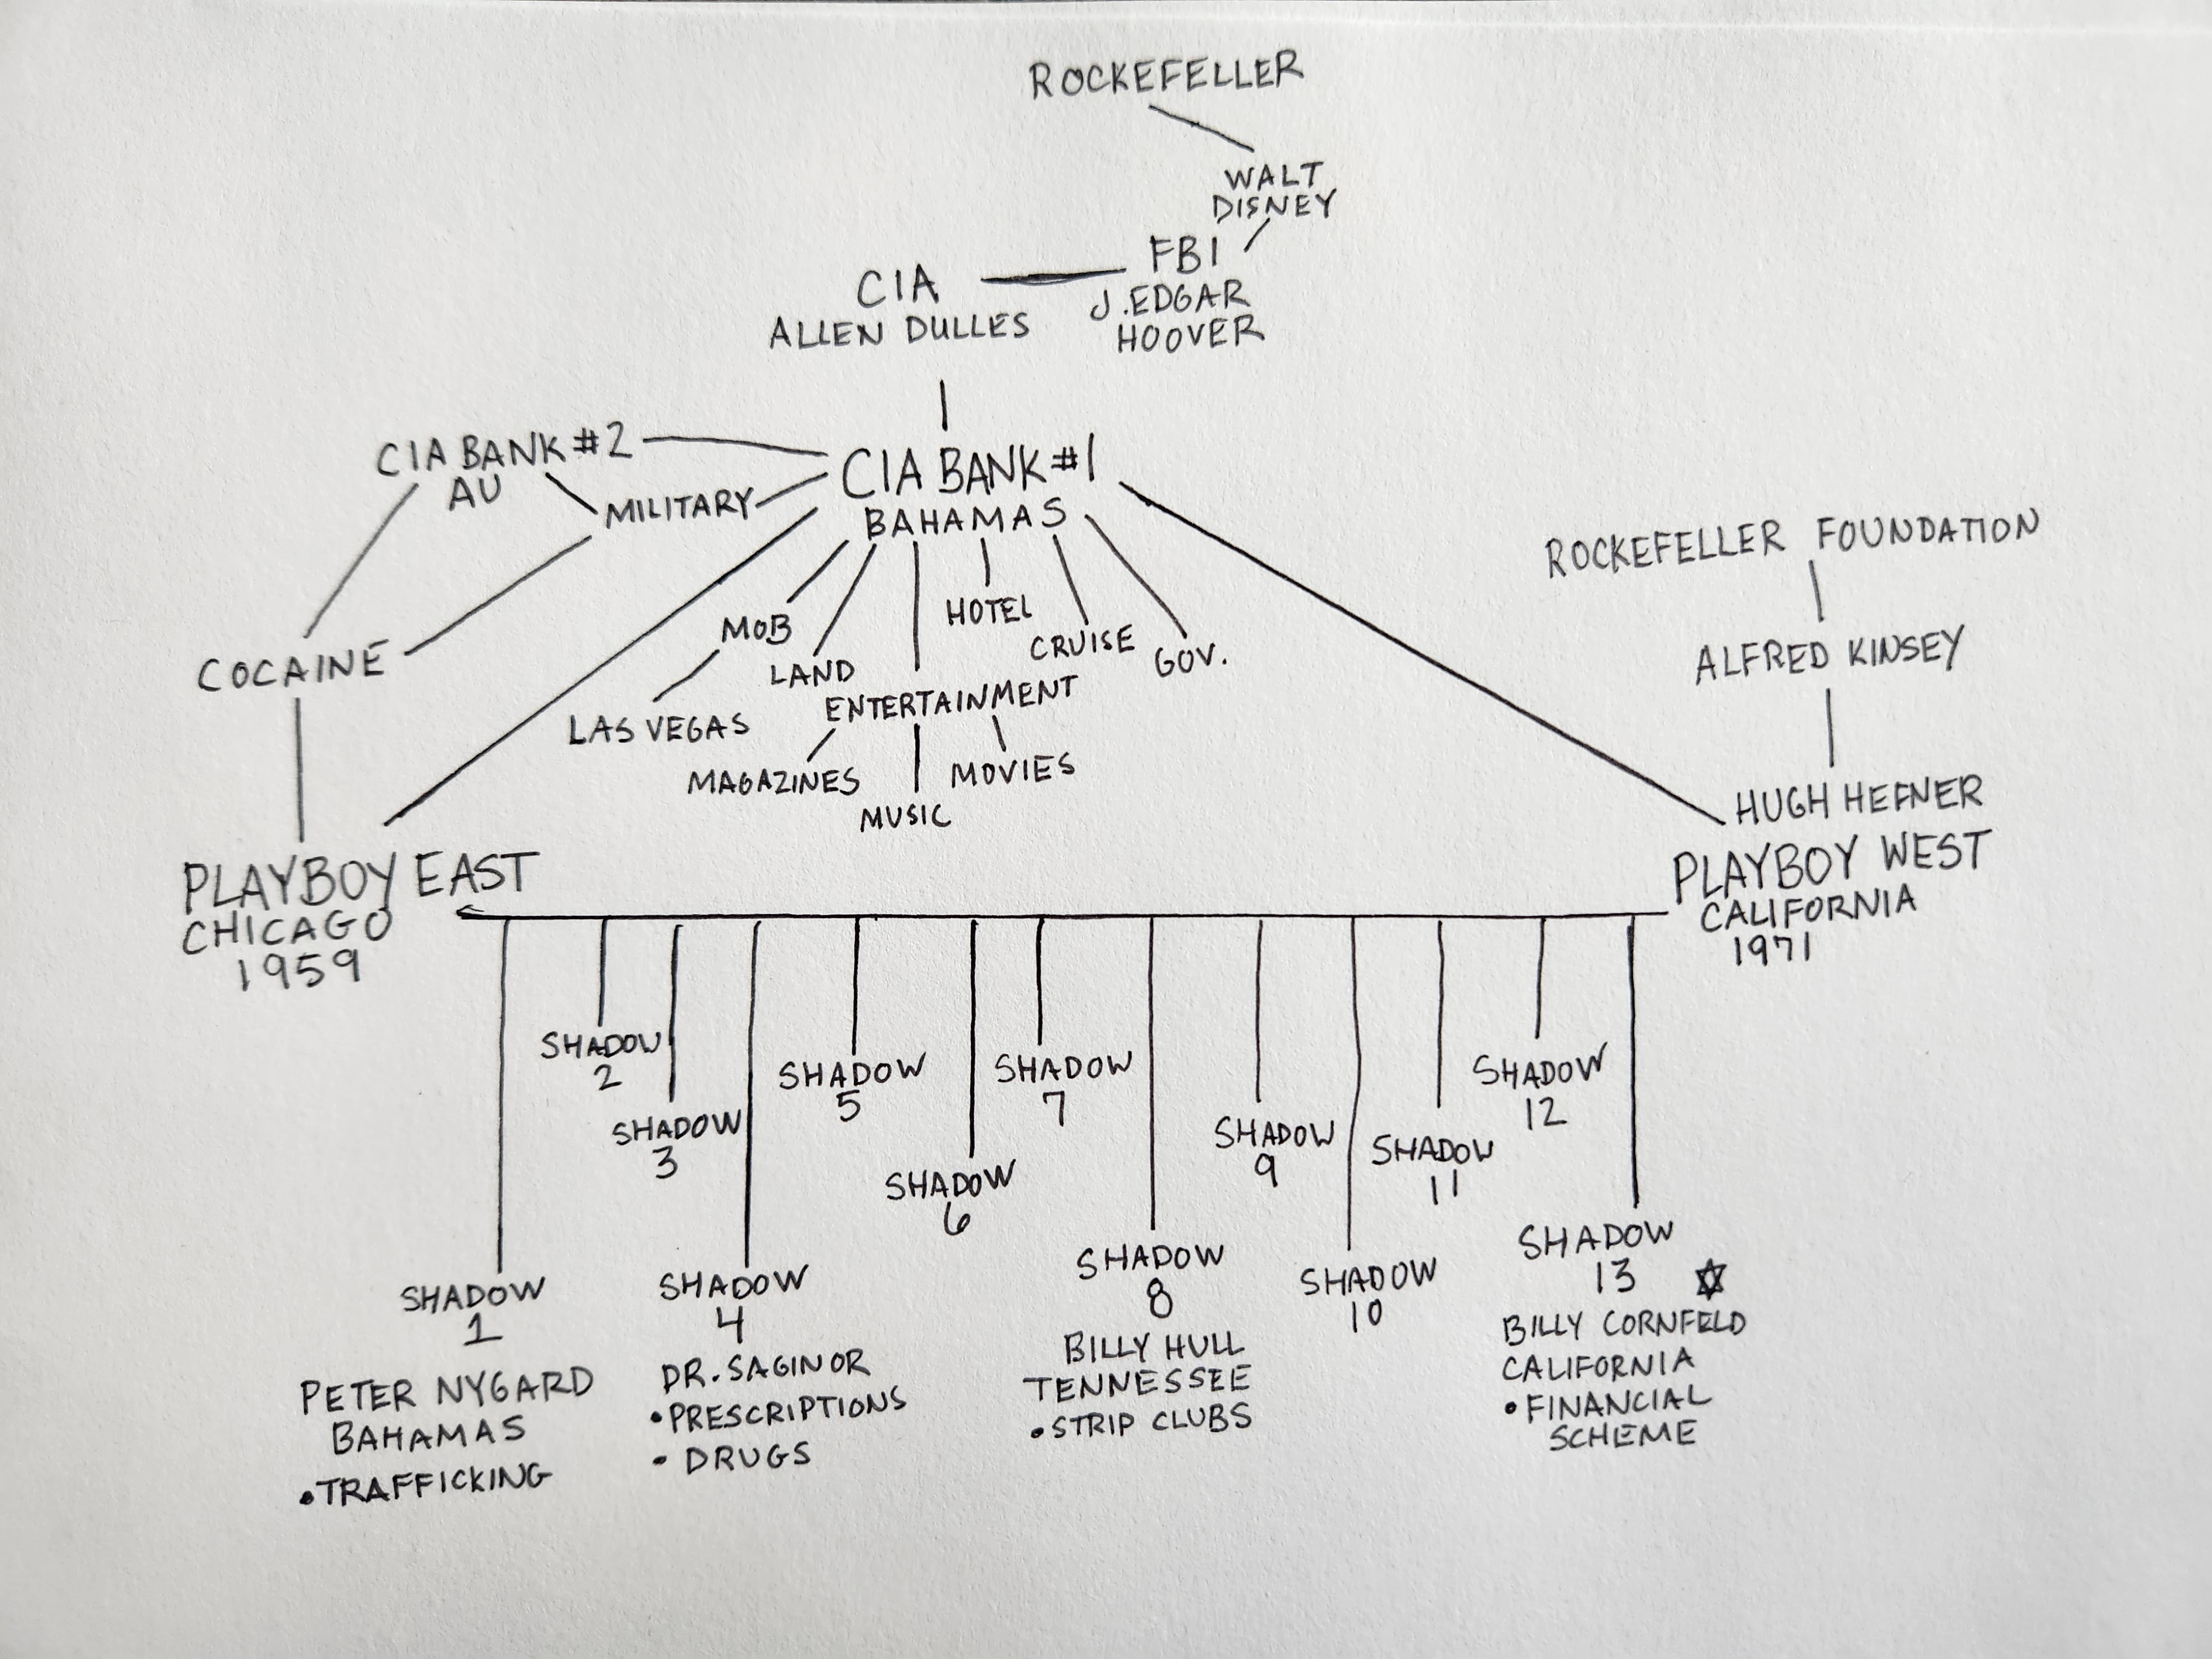 ROCKEFELLER
WALT
DISNEY
FBI
J. EDGAR
HOOVER
CIA
ALLEN DULLES
CIA BANK #2
AU
MILITARY
CIA BANK #1
BAHAMAS
ROCKEFELLER FOUNDATION
ALFRED KINSEY
HUGH HEFNER
COCAINE
MOB
LAS VEGAS
LAND
ENTERTAINMENT
MAGAZINES
MUSIC
MOVIES
HOTEL
CRUISE
GOV.
PLAYBOY EAST
CHICAGO
1959
PLAYBOY WEST
CALIFORNIA
1971
SHADOW
1
PETER NYGARD
BAHAMAS
• TRAFFICKING
SHADOW
2
SHADOW
3
SHADOW
4
DR. SAGINOR
• PRESCRIPTIONS
• DRUGS
SHADOW
5
SHADOW
6
SHADOW
7
SHADOW
8
BILLY HULL
TENNESSEE
• STRIP CLUBS
SHADOW
9
SHADOW
10
SHADOW
11
SHADOW
12
SHADOW
13
BILLY CORNFELD
CALIFORNIA
• FINANCIAL
SCHEME